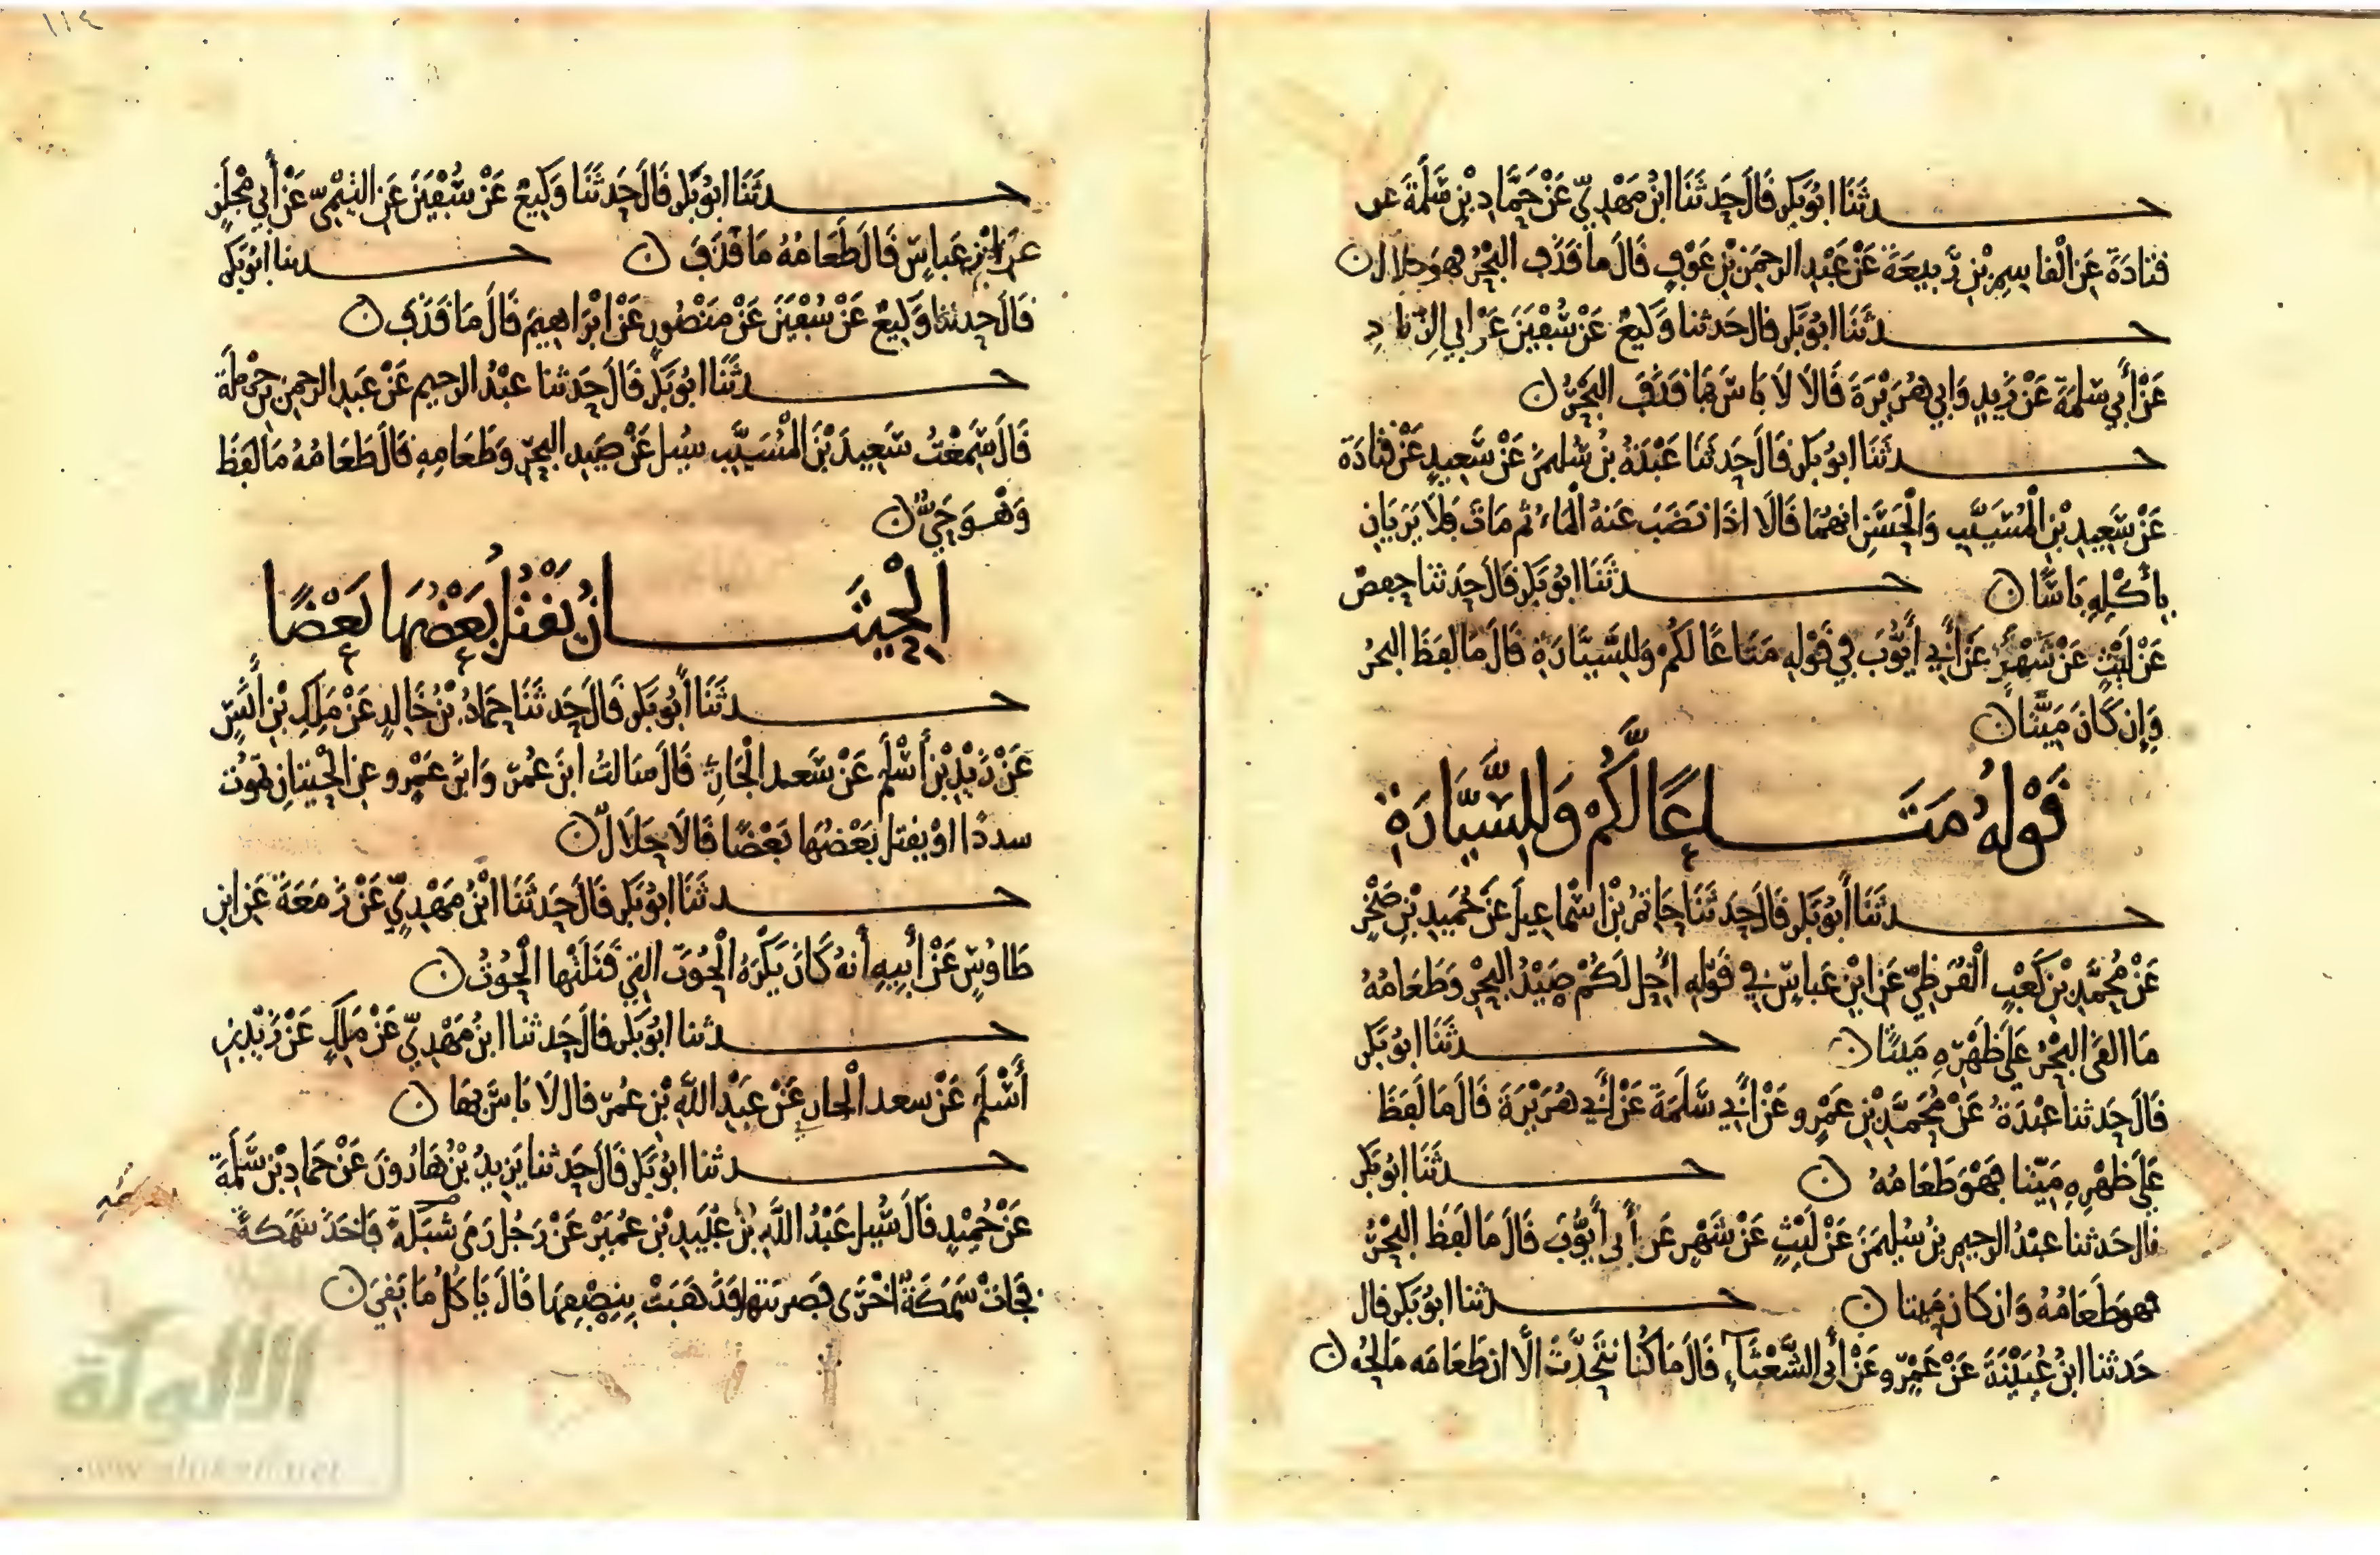 حدثنا ابو بكر قال حدثنا ابن مهدي عن حماد بن سلمة عن
قتادة عن القاسم بن ربيعة عن عبد الرحمن بن عوف قال ما قذف البحر فهو حلال
حدثنا ابو بكر قال حدثنا وكيع عن سفين عن ابي الزناد
عن أبي سلمة عن زيد وابي هريرة قالا لا باس بما قذف البحر
حدثنا ابو بكر قال حدثنا عبدة بن سليمن عن سعيد عن قتادة
عن سعيد بن المسيب والحسن انهما قالا اذا نضب عنه الماء ثم مات فلا يريان
بأكله باسا حدثنا ابو بكر قال حدثنا حفص
عن ليث عن شهر عن أبي أيوب في قوله متاعا لكم وللسيارة قال ما لفظ البحر
وإن كان ميتا
قوله متاعا لكم وللسيارة
حدثنا أبو بكر قال حدثنا حاتم بن اسماعيل عن حميد بن صخر
عن محمد بن كعب القرظي عن ابن عباس في قوله احل لكم صيد البحر وطعامه
ما القى البحر على ظهره ميتا حدثنا ابو بكر
قال حدثنا عبدة عن محمد بن عمرو عن أبي سلمة عن أبي هريرة قال ما لفظ
على ظهره ميتا فهو طعامه حدثنا ابو بكر
قال حدثنا عبد الرحيم بن سليمن عن ليث عن شهر عن أبي أيوب قال ما لفظ البحر
فهو طعامه وان كان ميتا حدثنا ابو بكر قال
حدثنا ابن عيينة عن عمرو عن أبي الشعثاء قال ما كنا نتحدث الا ان طعامه مالحه
١١٤
حدثنا ابو بكر قال حدثنا وكيع عن سفين عن التيمي عن أبي مجلز
عن ابن عباس قال طعامه ما قذف حدثنا ابو بكر
قال حدثنا وكيع عن سفين عن منصور عن ابراهيم قال ما قذف
حدثنا ابو بكر قال حدثنا عبد الرحيم عن عبد الرحمن بن حرملة
قال سمعت سعيد بن المسيب سيل عن صيد البحر وطعامه قال طعامه ما لفظ
وهو حي
الحيتان يقتل بعضها بعضا
حدثنا أبو بكر قال حدثنا حماد بن خالد عن ملك بن أنس
عن زيد بن أسلم عن سعد الجار قال سالت ابن عمر وابن عمرو عن الحيتان تموت
سددا او يقتل بعضها بعضا قالا حلال
حدثنا ابو بكر قال حدثنا ابن مهدي عن زمعة عن ابن
طاوس عن أبيه أنه كان يكره الحوت التي قتلتها الحوت
حدثنا ابو بكر قال حدثنا ابن مهدي عن ملك عن زيد بن
أسلم عن سعد الجار عن عبد الله بن عمر قال لا باس بها
حدثنا ابو بكر قال حدثنا يزيد بن هارون عن حماد بن سلمة
عن حميد قال سيل عبد الله بن عبيد بن عمير عن رجل رمى شبكة فاخذ سمكة
فجات سمكة اخرى فضربتها فذهبت بنصفها قال ياكل ما بقي
الألوكة
www.alukah.net